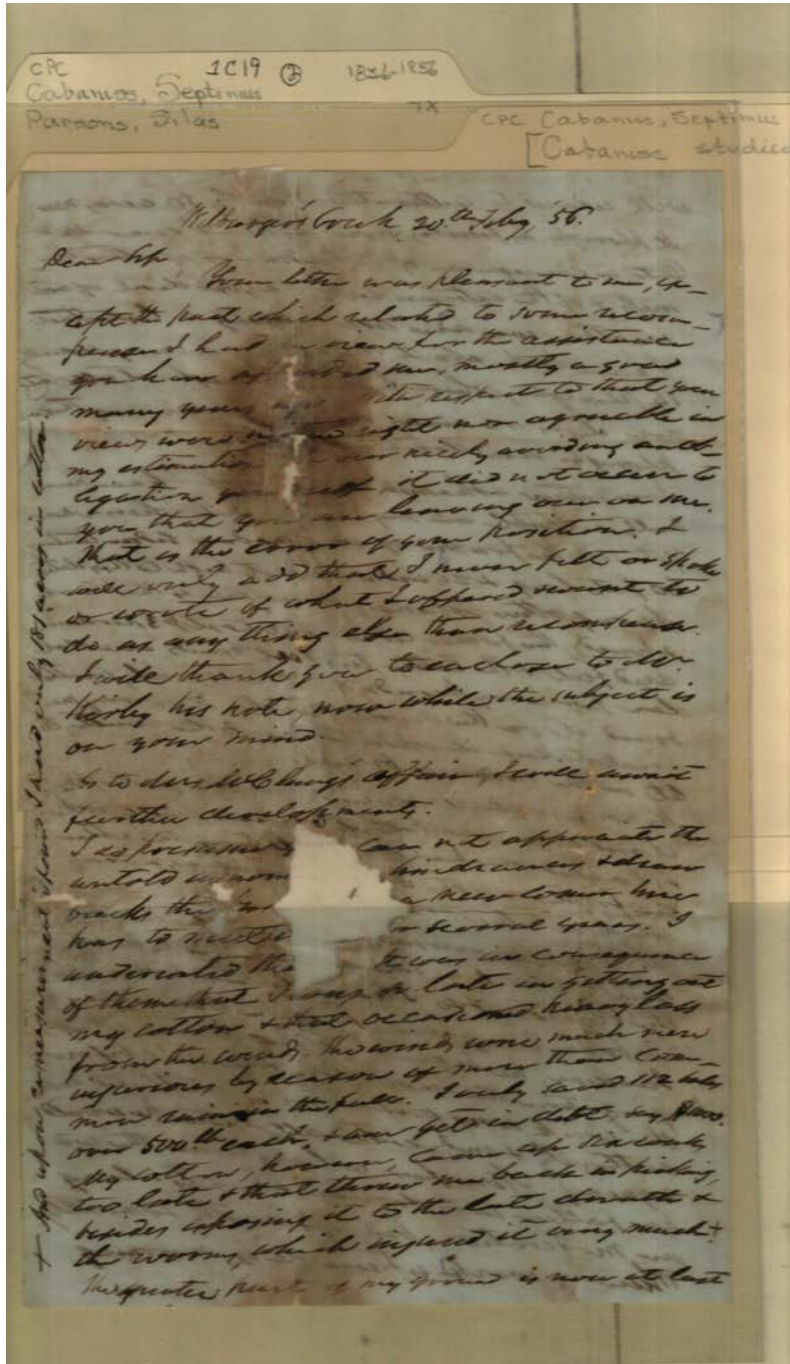 CPC 1C19 ② 1856
Cabaniss, Septimus
Parsons, Silas
TX
CPC Cabaniss, Septimus
[Cabaniss studied
Creek 20th Feby 56.
Dear Sir
Your letter was pleasant to me, ex-
cept the part which related to some recom-
pense I had in view for the assistance
you have afforded me, mostly a good
many years respect to that your
views were right nor agreeable in
my estimation nicely avoiding an ob-
ligation yourself it did not occur to
you that you leaving one on me.
That is the error of your position. I
will only add that I never felt or spoke
or wrote of what I offered to
do as any thing else than recompense.
I will thank you to enclose to Mr.
his note, now while the subject is
on your mind.
As to Mrs McClung's affair, I will await
further developments.
I can not appreciate the
untold hindrances & draw
backs the a new comer here
has to several years. I
underrated It was in consequence
of them that I was so late in getting out
my cotton & that occasioned heavy loss
from the winds. The winds were much more
injurious by reason of more than com-
mon rains in the fall. I only saved 112 bales
over 500 lb each, & am yet in debt, say
My cotton, however, came up six weeks
too late & that threw me back in picking,
besides exposing it to the late drouth &
the worms, which injured it very much. +
The greater part of my ground is now at last
+ And upon measurement I found I had only 181 acres in cotton